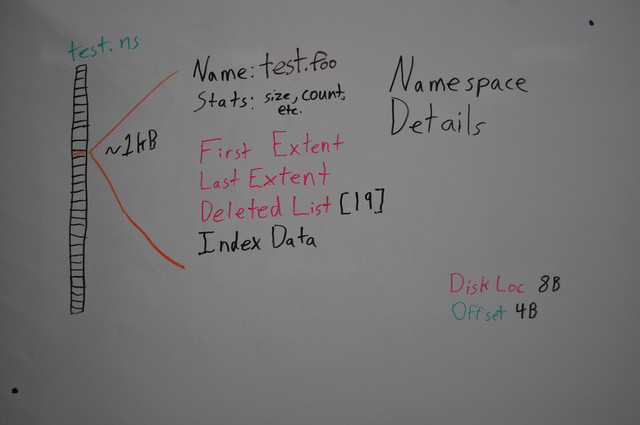 test.ns
~1kB
Name: test.foo
Stats: size, count,
etc.
First Extent
Last Extent
Deleted List [19]
Index Data
Namespace
Details
Disk Loc 8B
Offset 4B